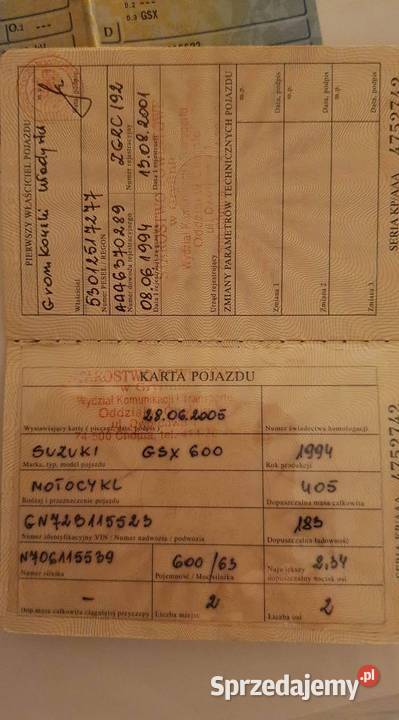 O.1 ---
D
--- GSX
PIERWSZY WŁAŚCICIEL POJAZDU
Właściciel
m.p.
Data, podpis
53012517277
Numer PESEL / REGON
AAA6370289
ZGRC 192
Numer dowodu rejestracyjnego
Numer rejestracyjny
08.06.1994
13.08.2001
Data 1 rejestracji
Urząd rejestrujący
ZMIANY PARAMETRÓW TECHNICZNYCH POJAZDU
Zmiana 1
m.p.
Data, podpis
Zmiana 2
m.p.
Data, podpis
Zmiana 3
m.p.
Data, podpis
SERIA KP/AAA 4752742
KARTA POJAZDU
Wydział Komunikacji i Transportu
28.06.2005
Wystawiający kartę ( pieczęć, data, podpis )
Numer świadectwa homologacji
SUZUKI GSX 600
1994
Marka, typ, model pojazdu
Rok produkcji
MOTOCYKL
405
Rodzaj i przeznaczenie pojazdu
Dopuszczalna masa całkowita
GN72B115523
183
Numer identyfikacyjny VIN / Numer nadwozia / podwozia
Dopuszczalna ładowność
N706115539
600/63
Największy dopuszczalny nacisk osi
2,34
Numer silnika
Pojemność / Moc silnika
-
2
2
Dop.masa całkowita ciągniętej przyczepy
Liczba miejsc
Liczba osi
Sprzedajemy.pl